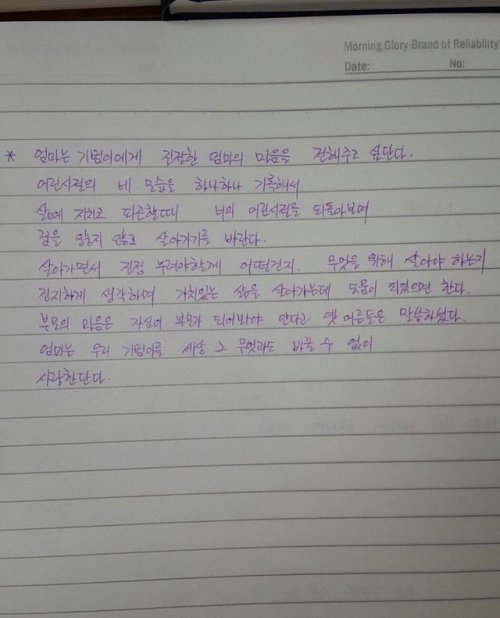 Morning Glory-Brand of Reliability
Date: No:
* 엄마는 기범이에게 간절한 엄마의 마음을 전해주고 싶단다.
어린시절의 네 모습을 하나하나 기록해서
삶에 지치고 피곤할때 너의 어린시절을 되돌아보며
꿈을 잃지 않고 살아가기를 바란다.
살아가면서 진정 누려야할게 어떤건지. 무엇을 위해 살아야 하는지
진지하게 생각하며 가치있는 삶을 살아가는데 도움이 되었으면 한다.
부모의 마음은 자신이 부모가 되어봐야 안다고 옛 어른들은 말씀하셨다.
엄마는 우리 기범이를 세상 그 무엇과도 바꿀 수 없이
사랑한단다.